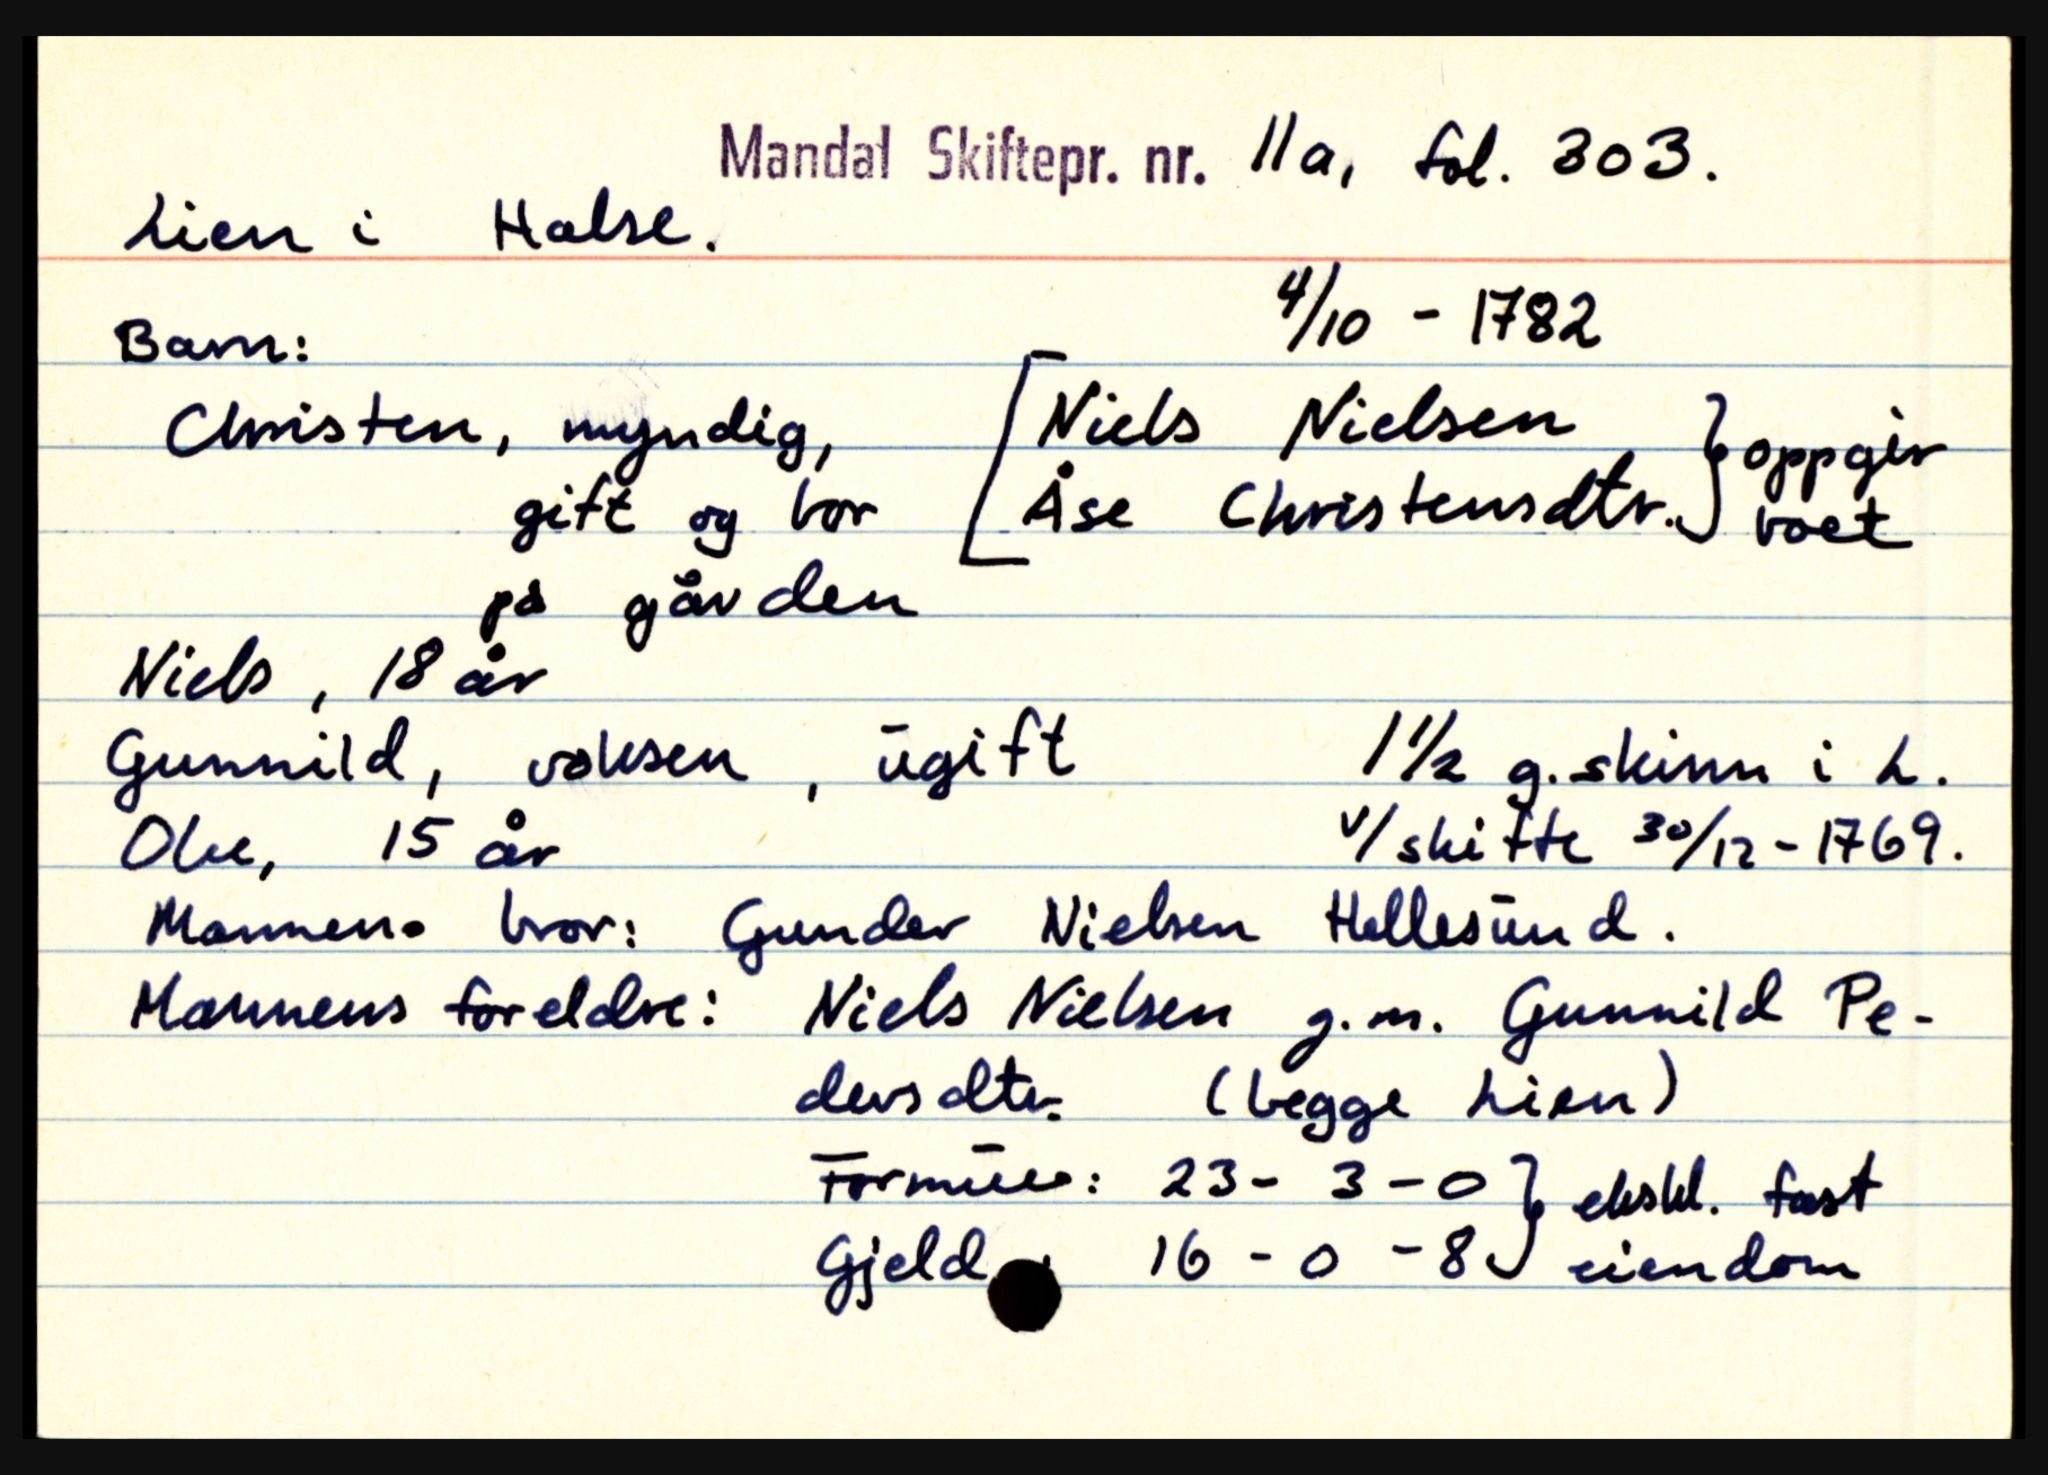 Mandal Skiftepr. nr. 11a, fol. 303.
Lien i Halse.
4/10 - 1782
Barn:
Christen, myndig,
gift og bor
på gården
[Niels Nielsen
Åse Christensdtr.} oppgir
boet
Niels, 18 år
Gunnild, voksen, ugift
Ole, 15 år
1 1/2 g. skinn i L.
v/ skifte 30/12 - 1769.
Mannens bror: Gunder Nielsen Hellesund.
Mannens foreldre: Niels Nielsen g.m. Gunnild Pe-
dersdtr. (begge Lien)
Formue: 23 - 3 - 0 } ekskl. fast
Gjeld : 16 - 0 - 8 eiendom